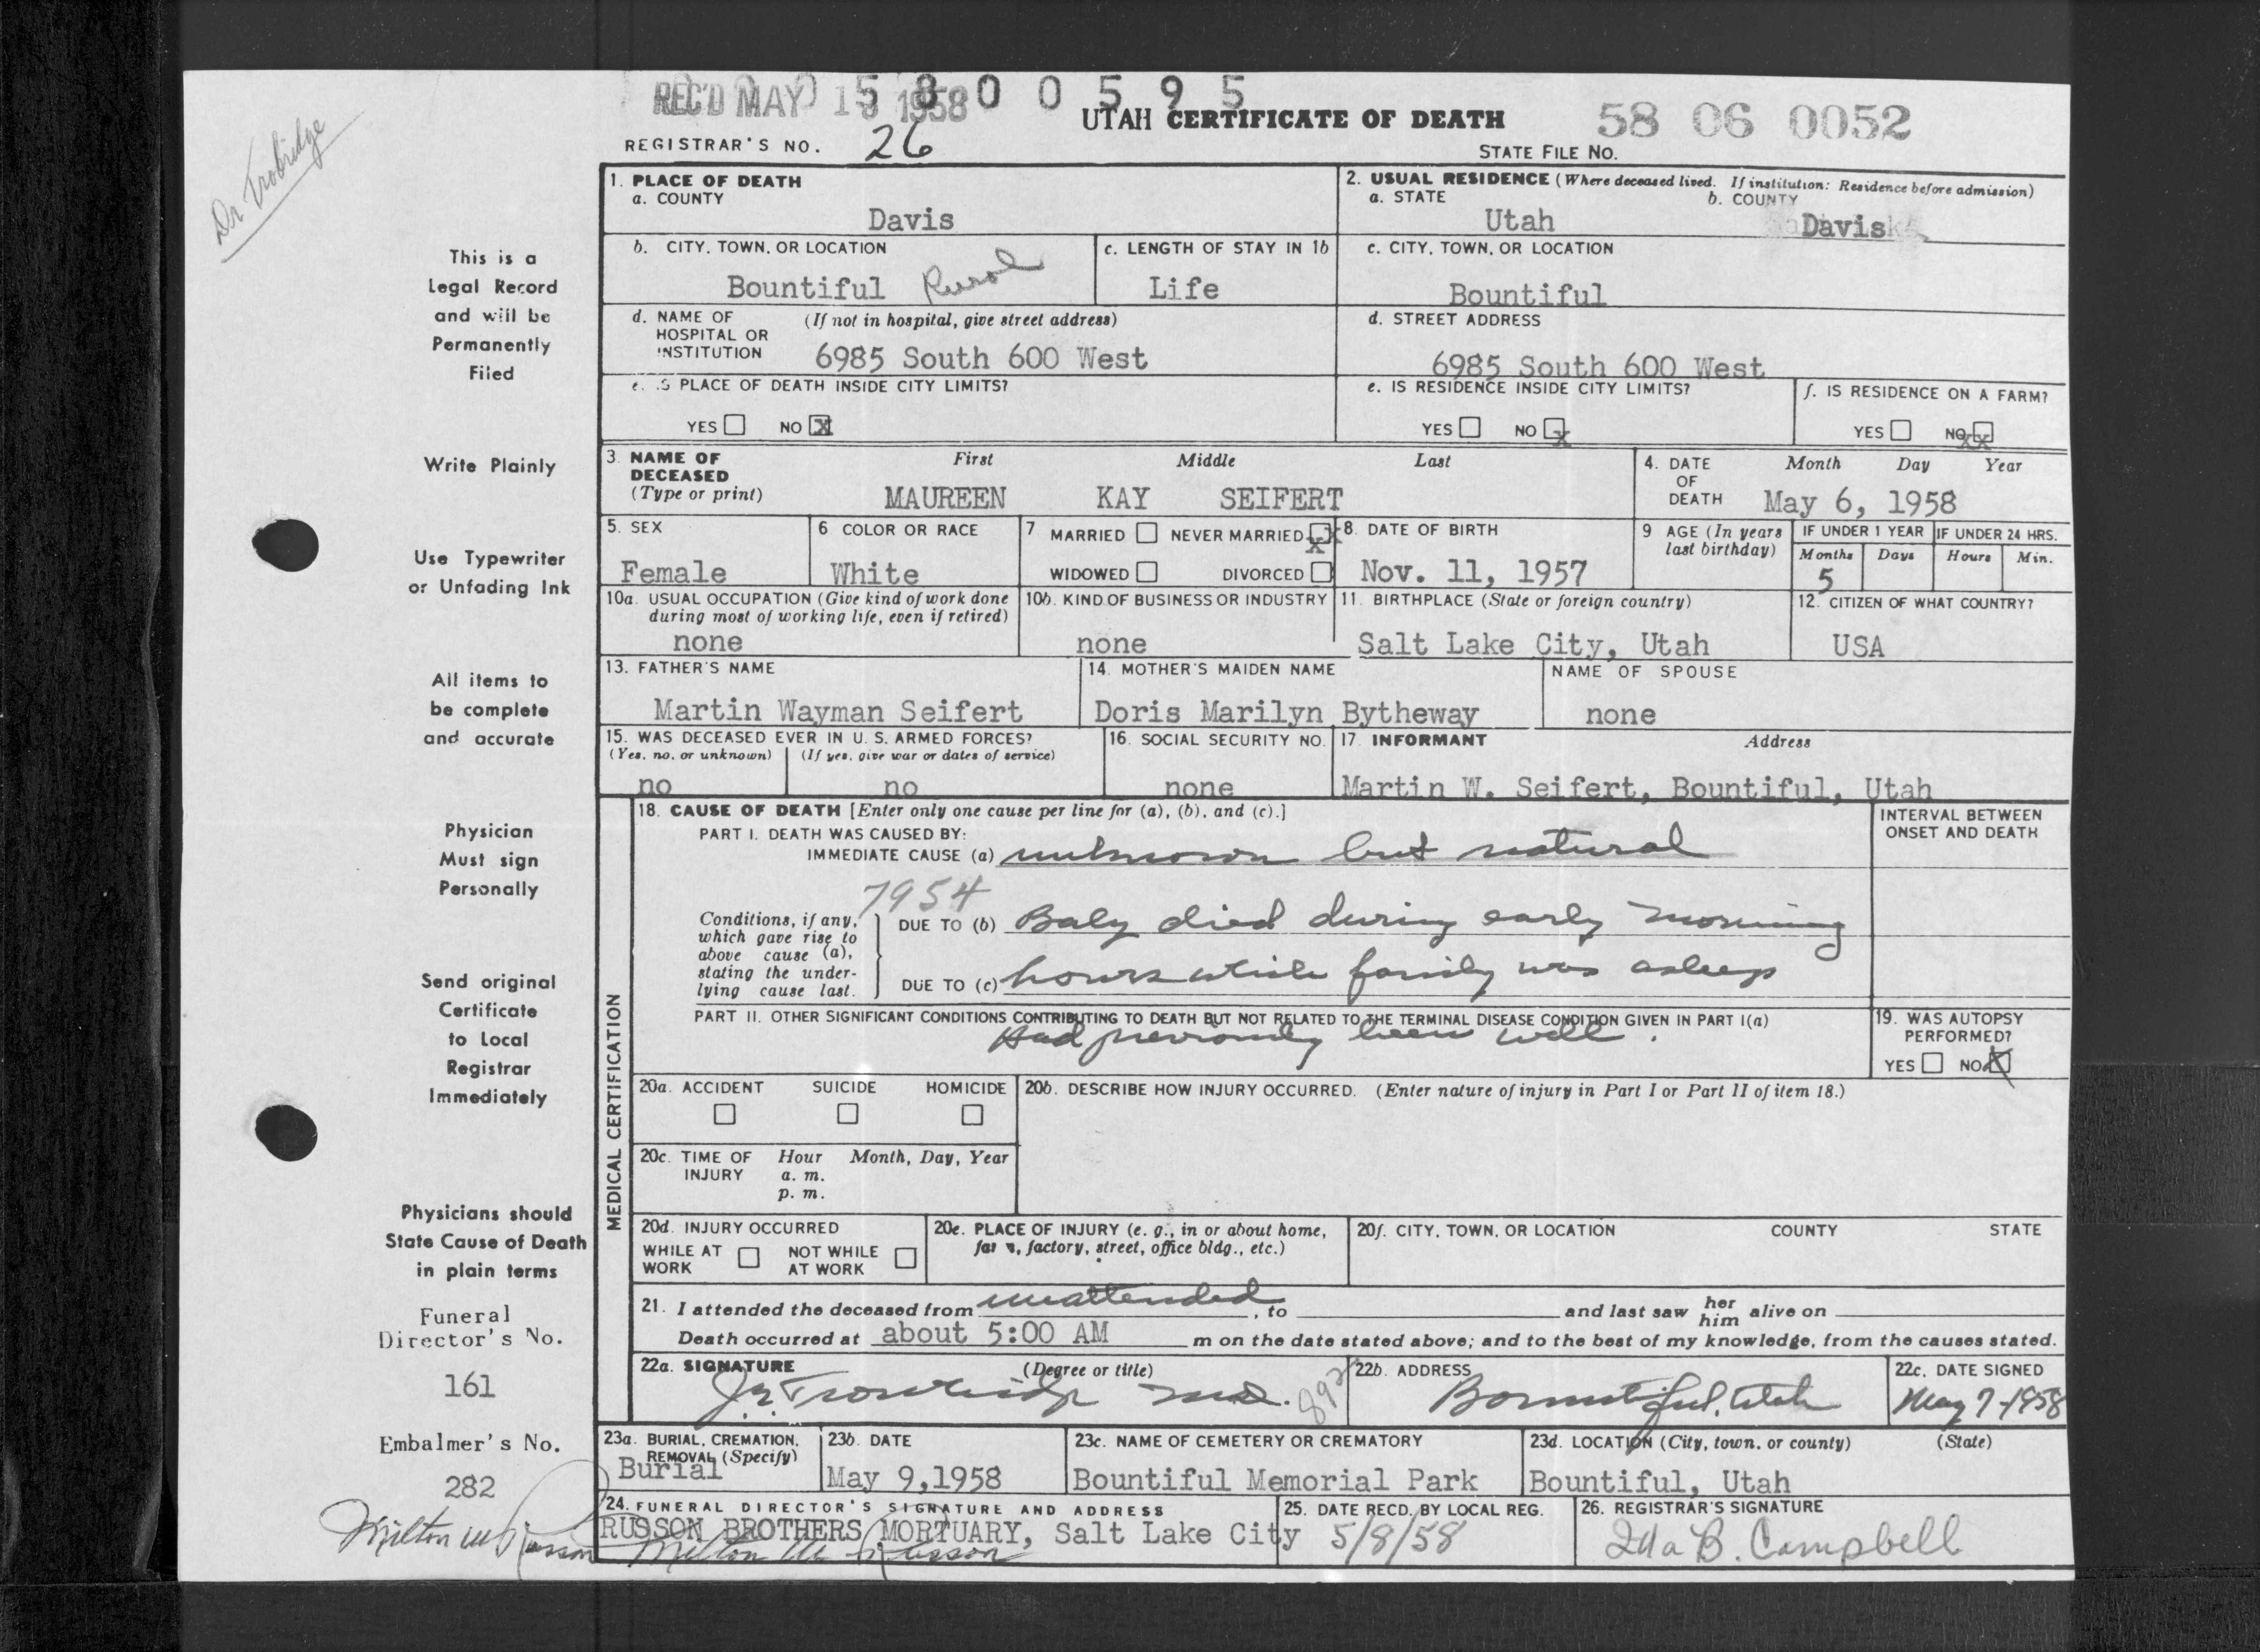 REC'D MAY 1958 5 8 0 0 5 9 5
UTAH CERTIFICATE OF DEATH
58 06 0052
REGISTRAR'S NO. 26
STATE FILE NO.
Dr Trobridge
This is a
Legal Record
and will be
Permanently
Filed
Write Plainly
Use Typewriter
or Unfading Ink
All items to
be complete
and accurate
Physician
Must sign
Personally
Send original
Certificate
to Local
Registrar
Immediately
Physicians should
State Cause of Death
in plain terms
Funeral
Director's No.
161
Embalmer's No.
282
Milton W Russon
1. PLACE OF DEATH
a. COUNTY
Davis
2. USUAL RESIDENCE (Where deceased lived. If institution: Residence before admission)
a. STATE b. COUNTY
Utah Davis
b. CITY, TOWN, OR LOCATION
Bountiful Rural
c. LENGTH OF STAY IN 1b
Life
c. CITY, TOWN, OR LOCATION
Bountiful
d. NAME OF (If not in hospital, give street address)
HOSPITAL OR
INSTITUTION 6985 South 600 West
d. STREET ADDRESS
6985 South 600 West
e. IS PLACE OF DEATH INSIDE CITY LIMITS?
YES NO X
e. IS RESIDENCE INSIDE CITY LIMITS?
YES NO X
f. IS RESIDENCE ON A FARM?
YES NO XX
3. NAME OF DECEASED (Type or print)
First Middle Last
MAUREEN KAY SEIFERT
4. DATE OF DEATH
Month Day Year
May 6, 1958
5. SEX
Female
6 COLOR OR RACE
White
7 MARRIED NEVER MARRIED X
WIDOWED DIVORCED
8. DATE OF BIRTH
Nov. 11, 1957
9 AGE (In years last birthday)
IF UNDER 1 YEAR IF UNDER 24 HRS.
Months Days Hours Min.
5
10a. USUAL OCCUPATION (Give kind of work done
during most of working life, even if retired)
none
10b. KIND OF BUSINESS OR INDUSTRY
none
11. BIRTHPLACE (State or foreign country)
Salt Lake City, Utah
12. CITIZEN OF WHAT COUNTRY?
USA
13. FATHER'S NAME
Martin Wayman Seifert
14. MOTHER'S MAIDEN NAME
Doris Marilyn Bytheway
NAME OF SPOUSE
none
15. WAS DECEASED EVER IN U. S. ARMED FORCES?
(Yes, no, or unknown) (If yes, give war or dates of service)
no no
16. SOCIAL SECURITY NO.
none
17. INFORMANT Address
Martin W. Seifert, Bountiful, Utah
MEDICAL CERTIFICATION
18. CAUSE OF DEATH [Enter only one cause per line for (a), (b), and (c).]
INTERVAL BETWEEN
ONSET AND DEATH
PART I. DEATH WAS CAUSED BY:
IMMEDIATE CAUSE (a) unknown but natural
7954
Conditions, if any,
which gave rise to
above cause (a),
stating the under-
lying cause last.
DUE TO (b) Baby died during early morning
DUE TO (c) hours while family was asleep
PART II. OTHER SIGNIFICANT CONDITIONS CONTRIBUTING TO DEATH BUT NOT RELATED TO THE TERMINAL DISEASE CONDITION GIVEN IN PART I(a)
Had previously been well.
19. WAS AUTOPSY
PERFORMED?
YES NO X
20a. ACCIDENT SUICIDE HOMICIDE
20b. DESCRIBE HOW INJURY OCCURRED. (Enter nature of injury in Part I or Part II of item 18.)
20c. TIME OF INJURY
Hour Month, Day, Year
a. m.
p. m.
20d. INJURY OCCURRED
WHILE AT WORK NOT WHILE AT WORK
20e. PLACE OF INJURY (e. g., in or about home,
farm, factory, street, office bldg., etc.)
20f. CITY, TOWN, OR LOCATION COUNTY STATE
21. I attended the deceased from unattended, to and last saw her him alive on
Death occurred at about 5:00 AM m on the date stated above; and to the best of my knowledge, from the causes stated.
22a. SIGNATURE (Degree or title)
Trowbridge M.D. 892
22b. ADDRESS
Bountiful, Utah
22c. DATE SIGNED
May 7-1958
23a. BURIAL, CREMATION,
REMOVAL (Specify)
Burial
23b. DATE
May 9,1958
23c. NAME OF CEMETERY OR CREMATORY
Bountiful Memorial Park
23d. LOCATION (City, town, or county) (State)
Bountiful, Utah
24. FUNERAL DIRECTOR'S SIGNATURE AND ADDRESS
RUSSON BROTHERS MORTUARY, Salt Lake City
Milton W Russon
25. DATE RECD. BY LOCAL REG.
5/8/58
26. REGISTRAR'S SIGNATURE
Ida B. Campbell